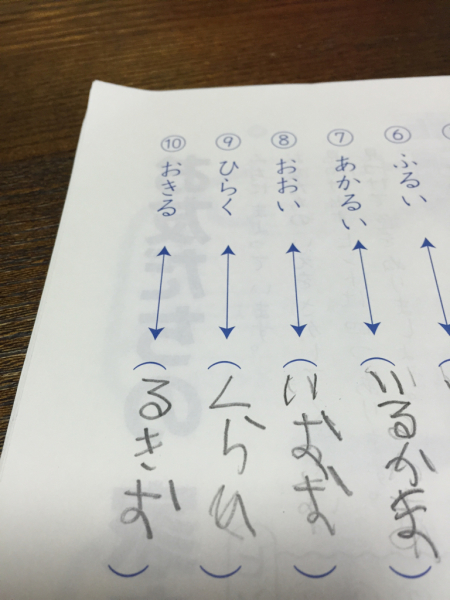 ⑥ ふるい
⑦ あかるい ↔ (いるかあ)
⑧ おおい ↔ (いおお)
⑨ ひらく ↔ (くらひ)
⑩ おきる ↔ (るきお)